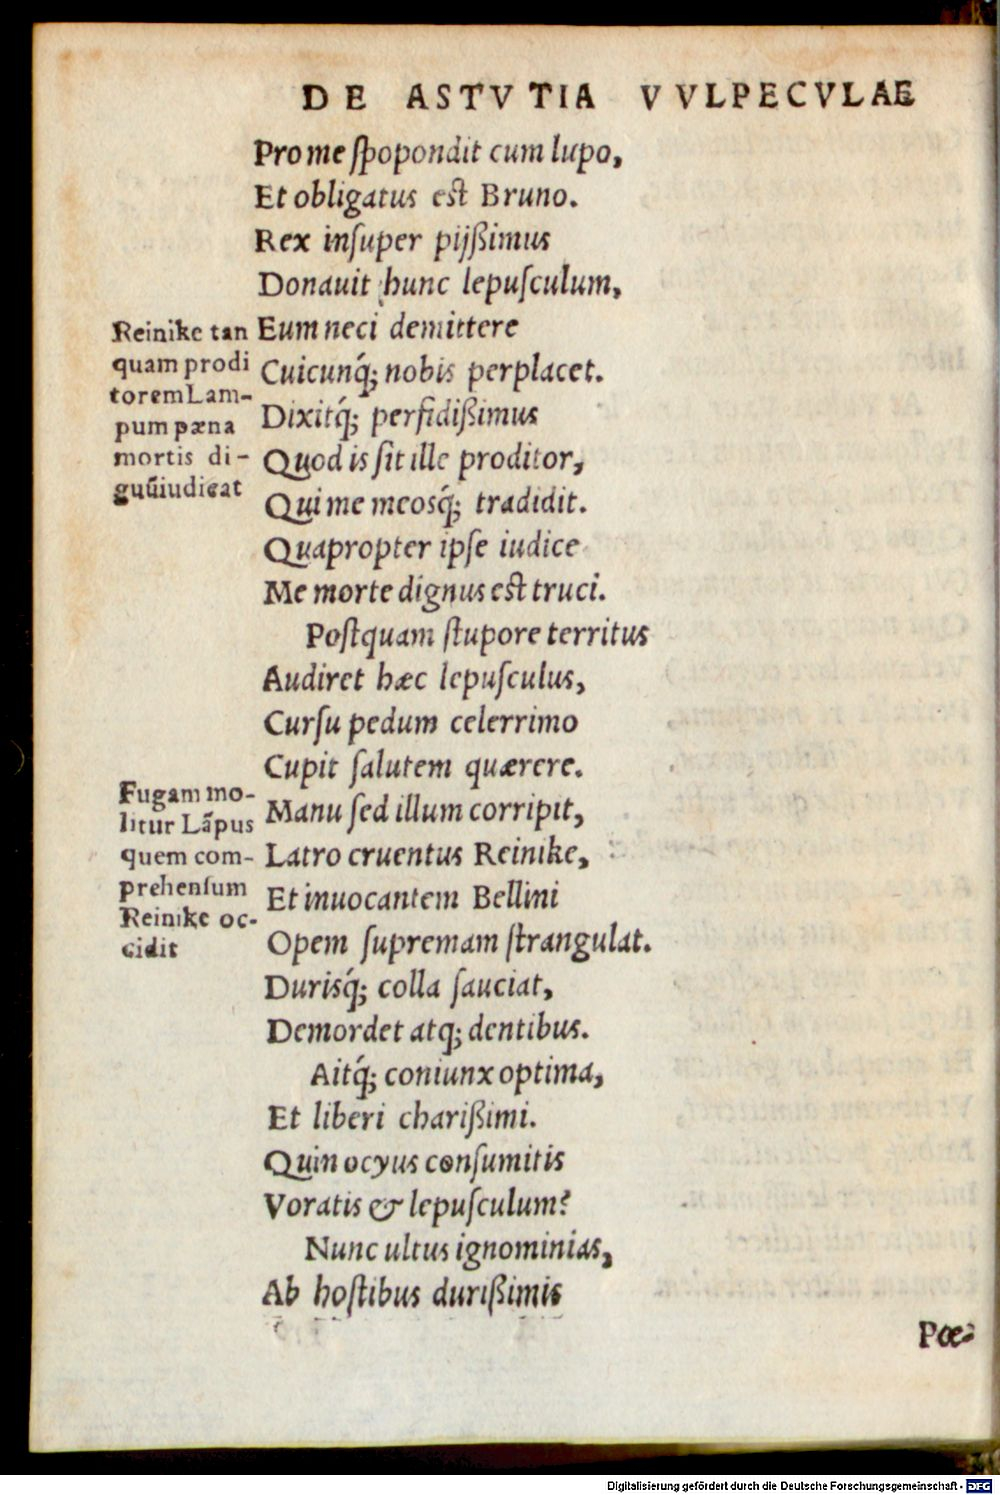 DE ASTVTIA VVLPECVLAE
Pro me ſpopondit cum lupo,
Et obligatus eſt Bruno.
Rex inſuper pijßimus
Donauit hunc lepuſculum,
Eum neci demittere
Cuicunq́; nobis perplacet.
Dixitq́; perfidißimus
Quod is ſit ille proditor,
Qui me meosq́; tradidit.
Quapropter ipſe iudice
Me morte dignus eſt truci.
Poſtquam ſtupore territus
Audiret hæc lepuſculus,
Curſu pedum celerrimo
Cupit ſalutem quærere.
Manu ſed illum corripit,
Latro cruentus Reinike,
Et inuocantem Bellini
Opem ſupremam ſtrangulat.
Durisq́; colla ſauciat,
Demordet atq; dentibus.
Aitq́; coniunx optima,
Et liberi charißimi.
Quin ocyus conſumitis
Voratis & lepuſculum?
Nunc ultus ignominias,
Ab hoſtibus durißimis
Pœ-
Reinike tan
quam prodi
torem Lam-
pum pæna
mortis di-
gnũ iudicat
Fugam mo-
litur Lãpus
quem com-
prehenſum
Reinike oc-
cidit
Digitalisierung gefördert durch die Deutsche Forschungsgemeinschaft - DFG